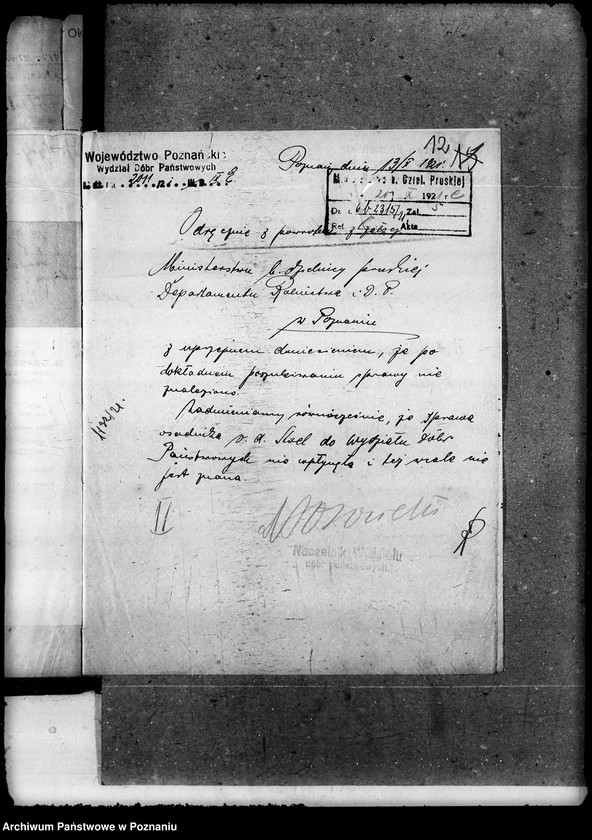 12
Województwo Poznańskie
Wydział Dóbr Państwowych
Poznań, dnia 13/X 1921.
b. Dziel. Pruskiej
20 X 1921
Dz. Zał. 5
Ref. Akta
Odręcznie z powrotem
Ministerstwu b. dzielnicy pruskiej
Departamentu Rolnictwa i D. P.
w Poznaniu
z uprzejmem doniesieniem, że po
dokładnem poszukiwaniu sprawy nie
znaleziono.
Nadmieniamy równocześnie, że sprawa
osadnika v. d. do Wydziału Dóbr
Państwowych nie wpłynęła i też wcale nie
jest znana.
1192/21.
II
Naczelnik Wydziału
dóbr państwowych.
Archiwum Państwowe w Poznaniu